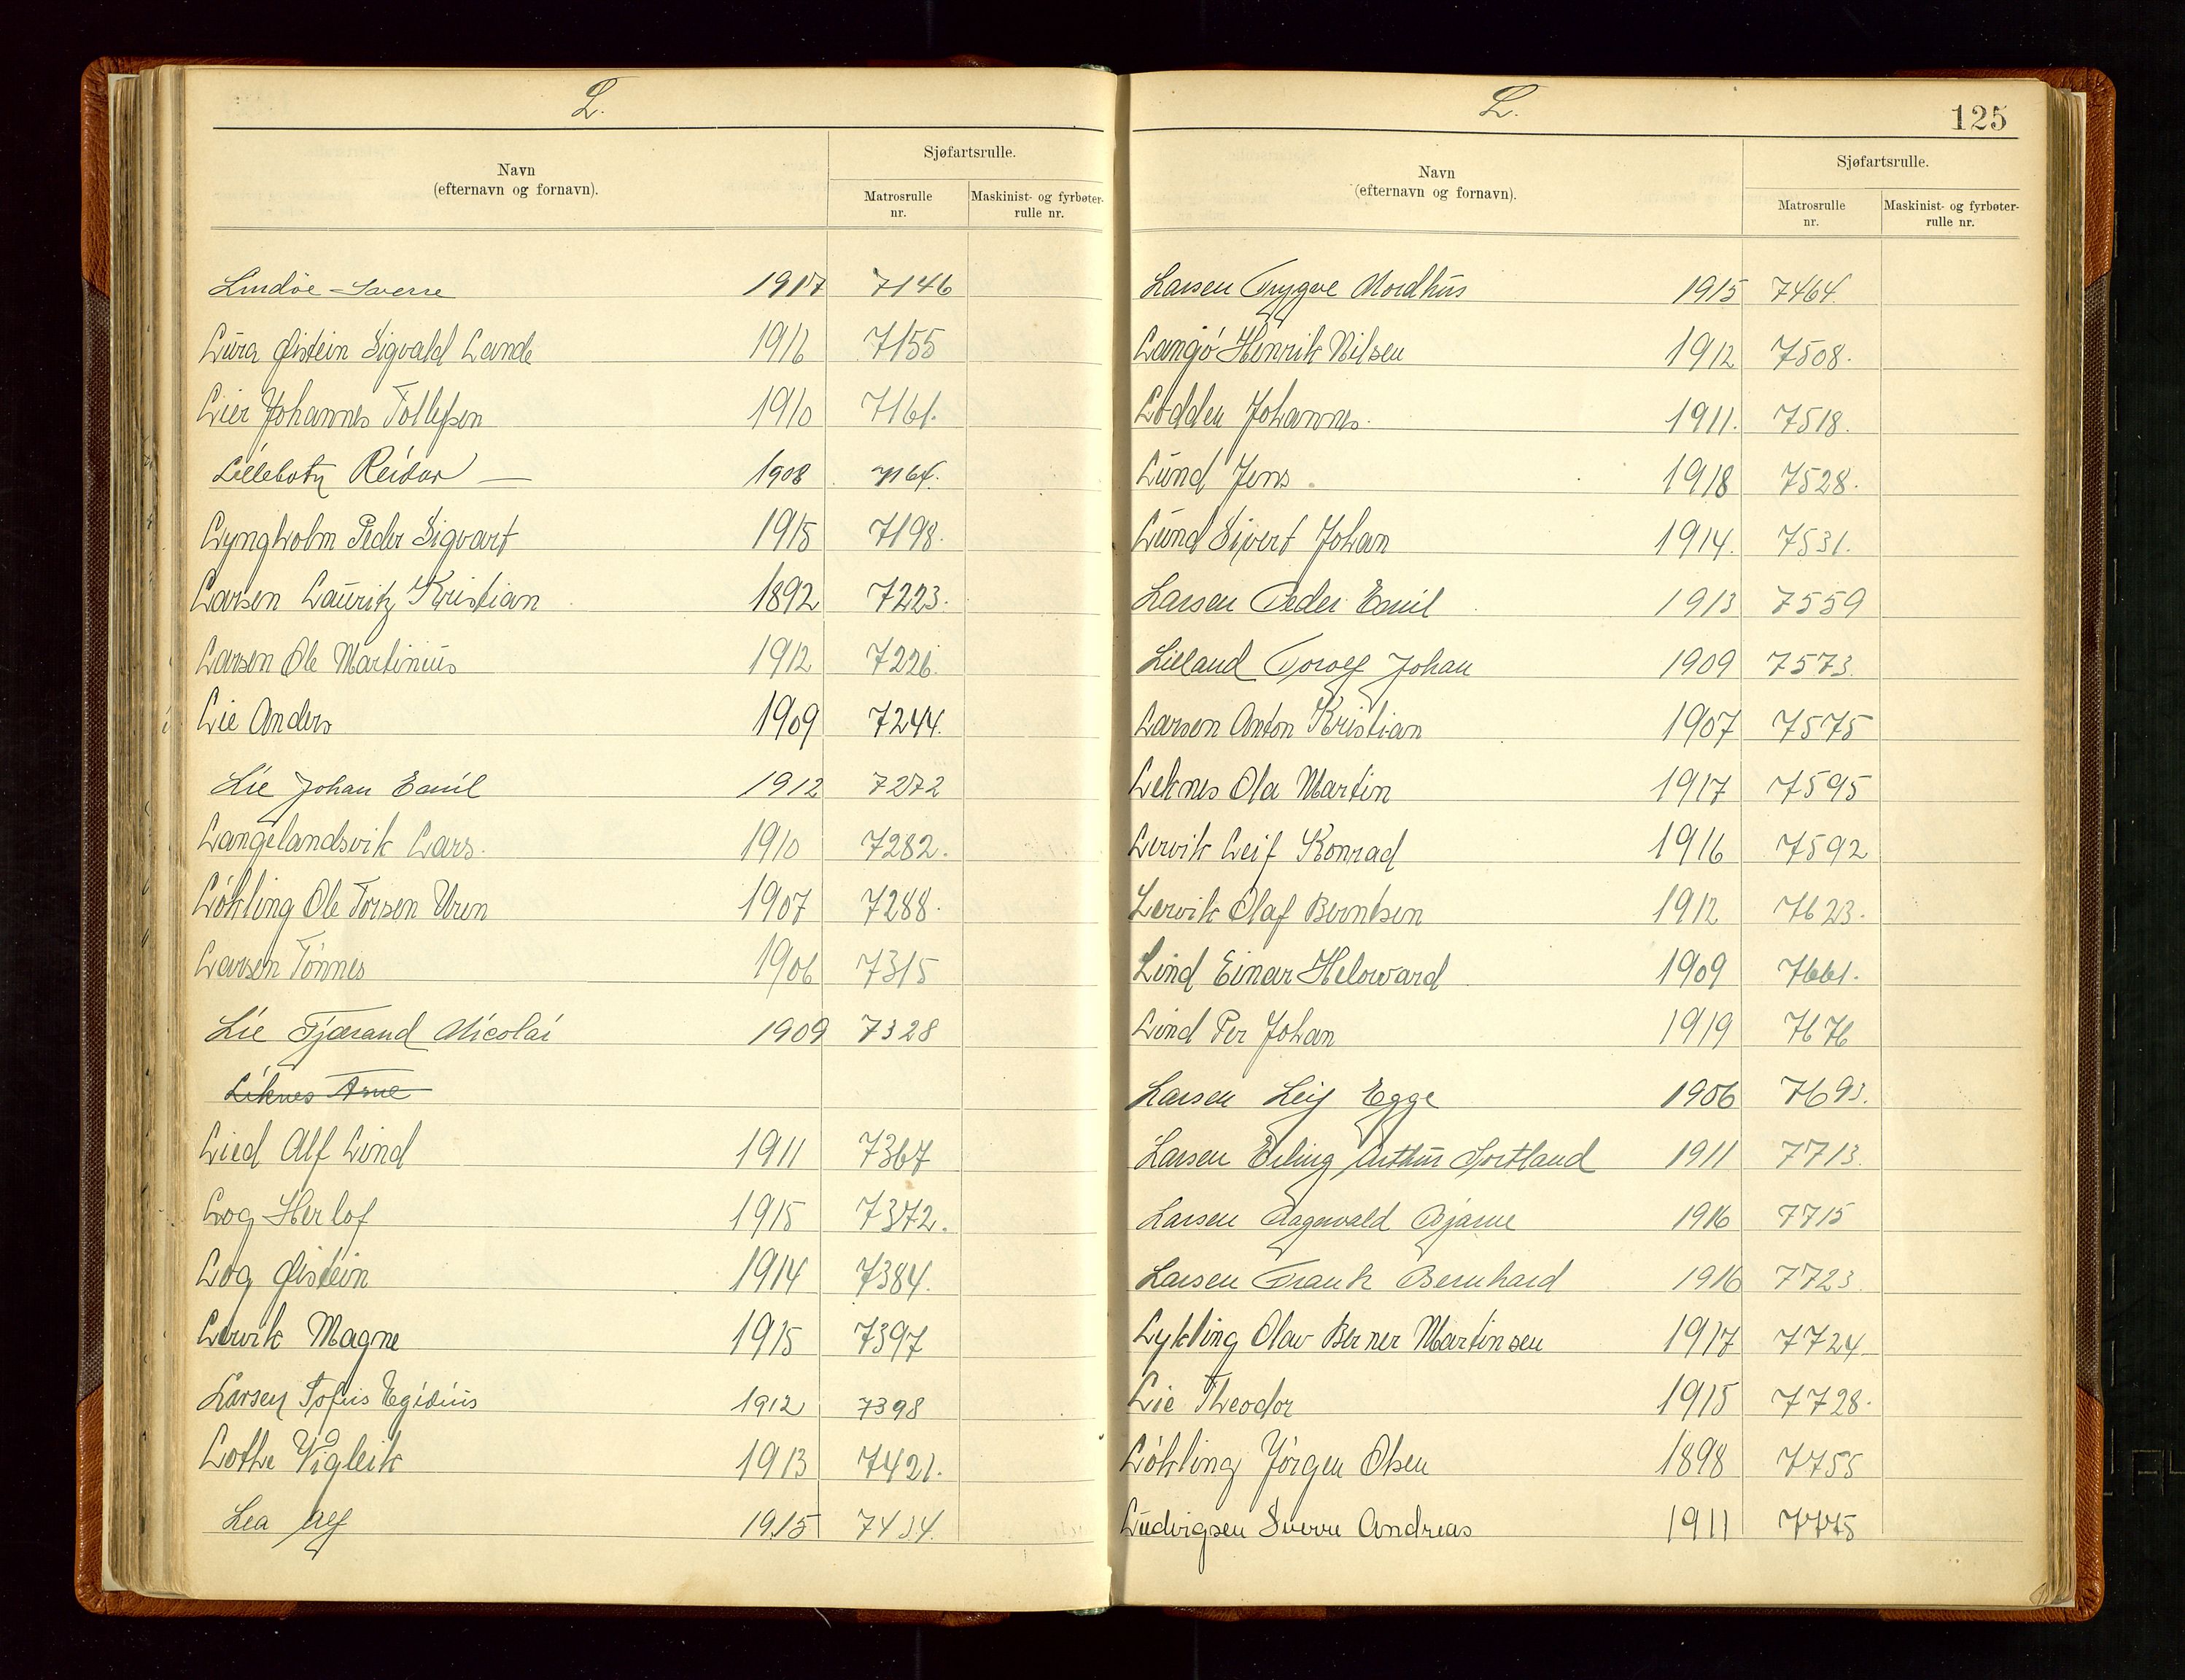 L.
Navn
(efternavn og fornavn).
Sjøfartsrulle.
Matrosrulle nr.
Maskinist- og fyrbøter-rulle nr.
Lindöe Sverre 1917 7146
Lura Øistein Sigvald Lande 1916 7155
Lier Johannes Tollefsen 1910 7161.
Reidar — 1908 7164.
Lyngholm Peder Sigvart 1915 7198.
Larsen Lauritz Kristian 1892 7223.
Larsen Ole Martinius 1912 7226.
Lie Anders 1909 7244.
Lie Johan Emil 1912 7272
Langelandsvik Lars. 1910 7282.
Lökling Ole Torsen Uren 1907 7288.
Larsen Tönnes 1906 7315
Lie Tjærand Nicolai 1909 7328
Liknes Arne
Lied Alf Lind 1911 7367
Log Herlof 1915 7372.
Log Øistein 1914 7384.
Lervik Magne 1915 7397
Larsen Egidius 1912 7398
Lothe Vigleik 1913 7421.
Lea Alf 1915 7434.
L.
125
Navn
(efternavn og fornavn).
Sjøfartsrulle.
Matrosrulle nr.
Maskinist- og fyrbøter-rulle nr.
Larsen Trygve Nordhus 1915 7464.
Langö Henrik Nilsen 1912 7508.
Lodden Johannes. 1911. 7518.
Lund Jens. 1918 7528.
Lund Sivert Johan 1914. 7531.
Larsen Peder Emil 1913 7559
Lilland Torolf Johan 1909 7573.
Larsen Anton Kristian 1907 7575
Leknes Ola Martin 1917 7595
Lervik Leif Konrad 1916 7592
Lervik Olaf Berntsen 1912 7623.
Lind Einar Heloward 1909 7661.
Lind Per Johan 1919 7676
Larsen Leif Egge 1906 7693.
Larsen Erling Arthur Sortland 1911 7713.
Larsen Ragnvald Bjarne 1916 7715
Larsen Frank Bernhard 1916 7723.
Lykling Olav Berner Martinsen 1917 7724
Lie Theodor 1915 7728.
Lökling Jörgen Olsen 1898 7755
Ludvigsen Sverre Andreas 1911 7775